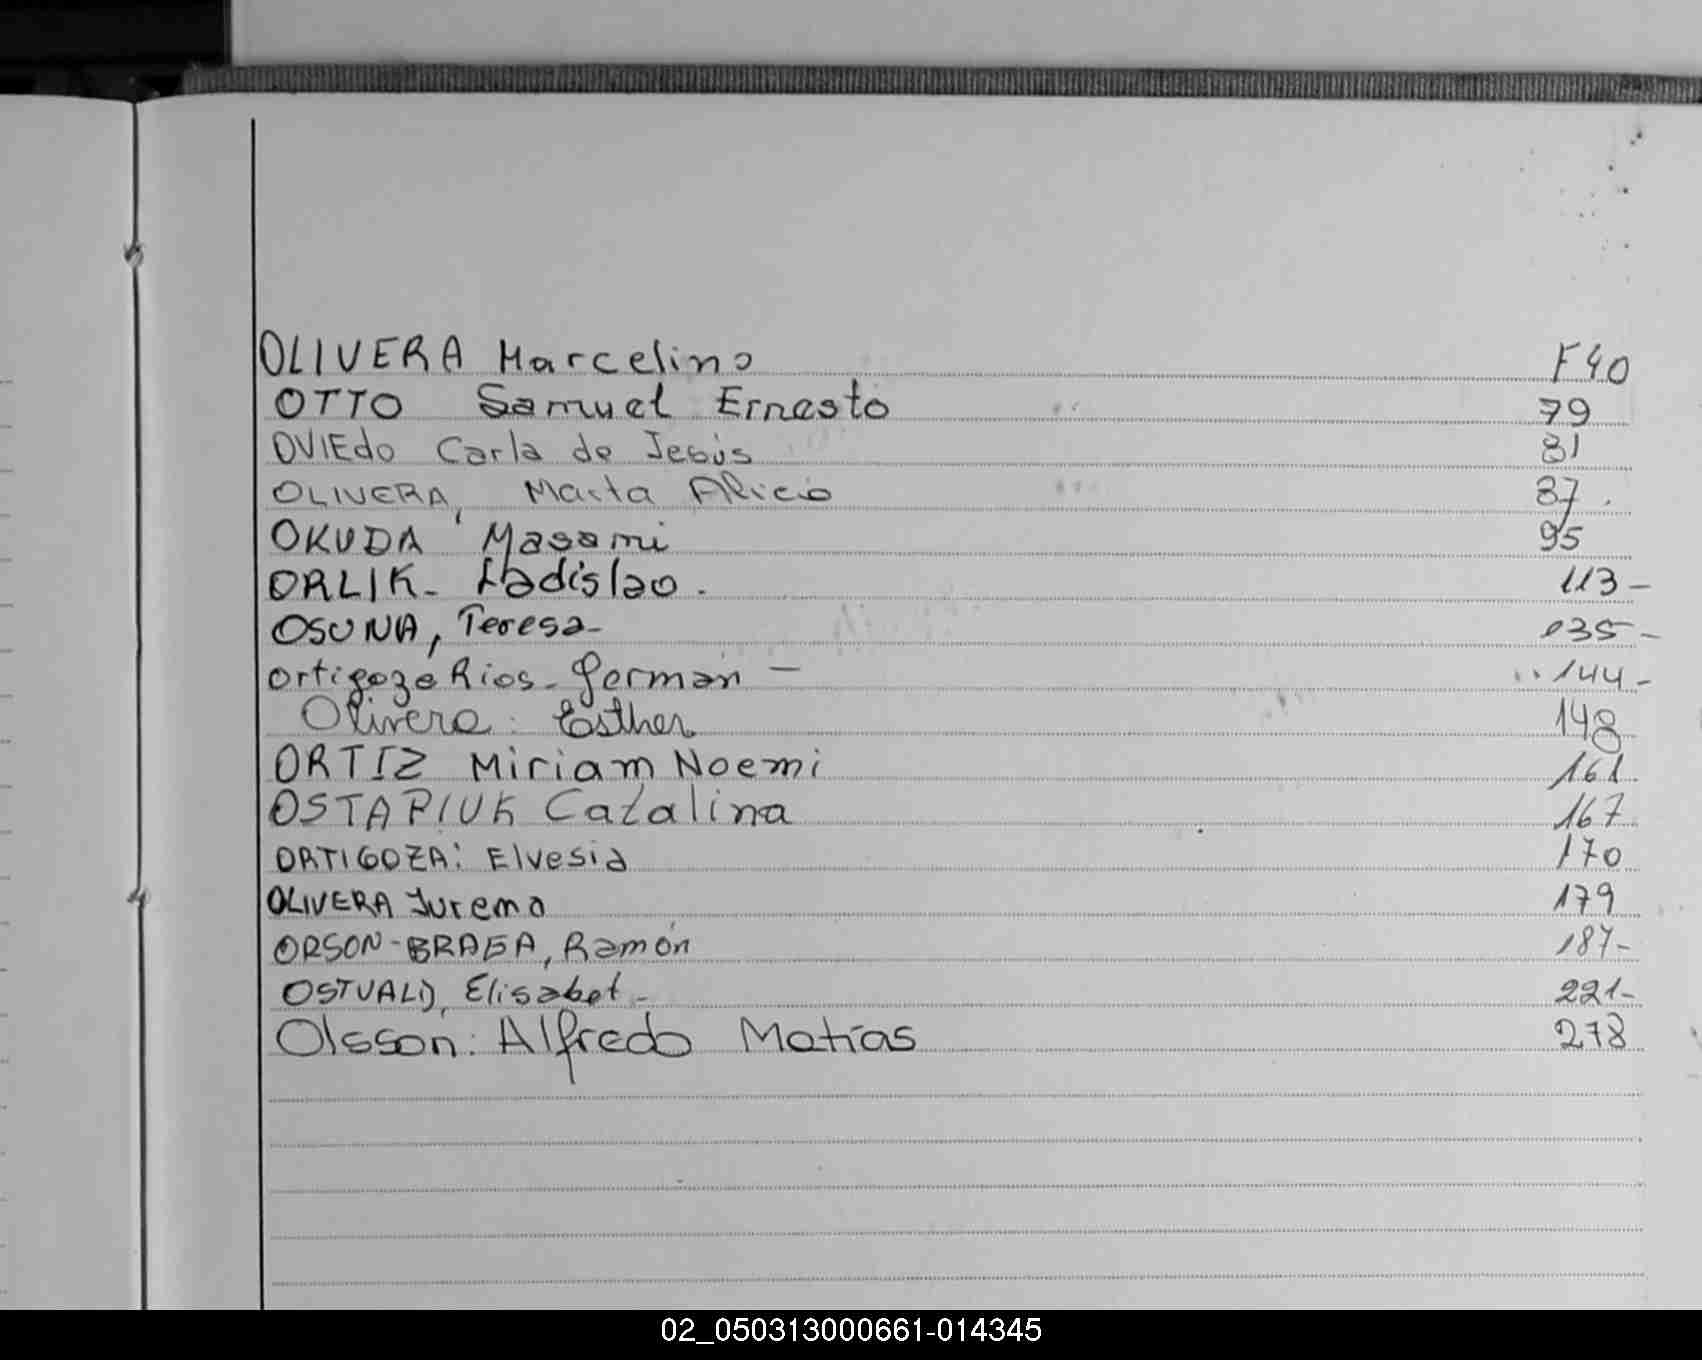 OLIVERA Marcelino F40
OTTO Samuel Ernesto 79
OVIEdo Carla de Jesús 81
OLIVERA, Marta Alicia 87.
OKUDA Masami 95
ORLIK- Ladislao. 113-
OSUNA, Teresa- 135-
Ortigoza Rios- German - 144-
Olivera: Esther 148
ORTIZ Miriam Noemi 161
OSTAPIUK Catalina 167
ORTIGOZA: Elvesia 170
OLIVERA Jurema 179
ORSON-BRAGA, Ramón 187-
OSTVALD, Elisabet- 221-
Olsson: Alfredo Matías 278
02_050313000661-014345